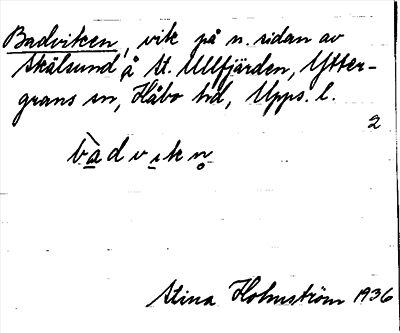 Badviken, vik på n. sidan av
Skålsund å St. Ullfjärden, Ytter-
grans sn, Håbo hd, Upps. l.
2
bàdvikn̥
Stina Holmström 1936